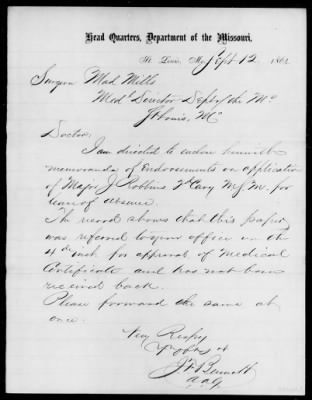 Head Quarters, Department of the Missouri,
St. Louis, Mo, Sept 12 186
Surgeon Mad Mills
Medl Director Dept of the Mo
St Louis, Mo
Doctor,
I am directed to enclose herewith
memoranda of Endorsements on application
of Major J Robbins 2d Cavy M.S.M. for
leave of absence.
The record shows that this paper
was referred to your office on the
4th inst for approval of Medical
Certificate and has not been
received back.
Please forward the same at
once.
Very Respy
Yr Obt St
J F Bennett
A.A.G.